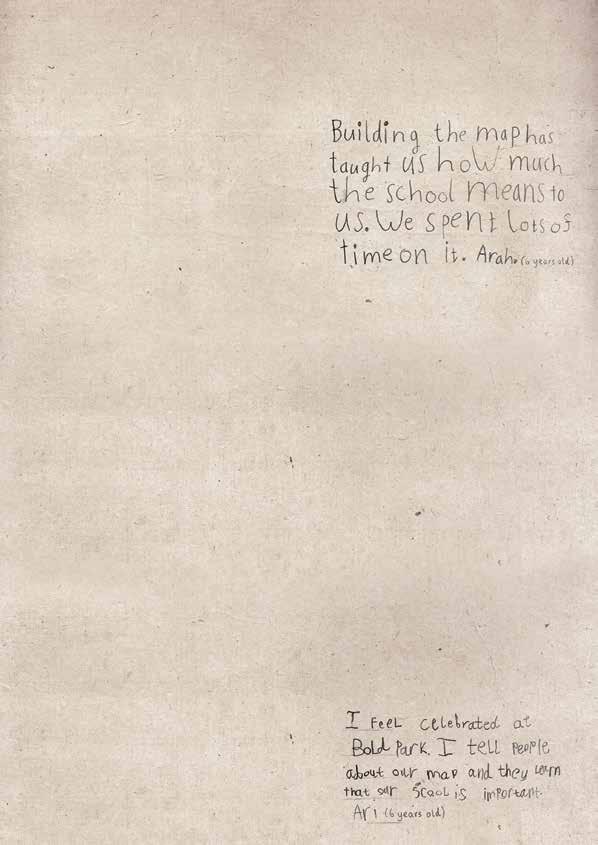 Building the map has
taught us how much
the school means to
us. We spent lots of
time on it. Arah. (6 years old)
I FeeL celebrated at
Bold Park. I tell People
about our map and they learn
that our Scool is important.
Ari (6 years old)